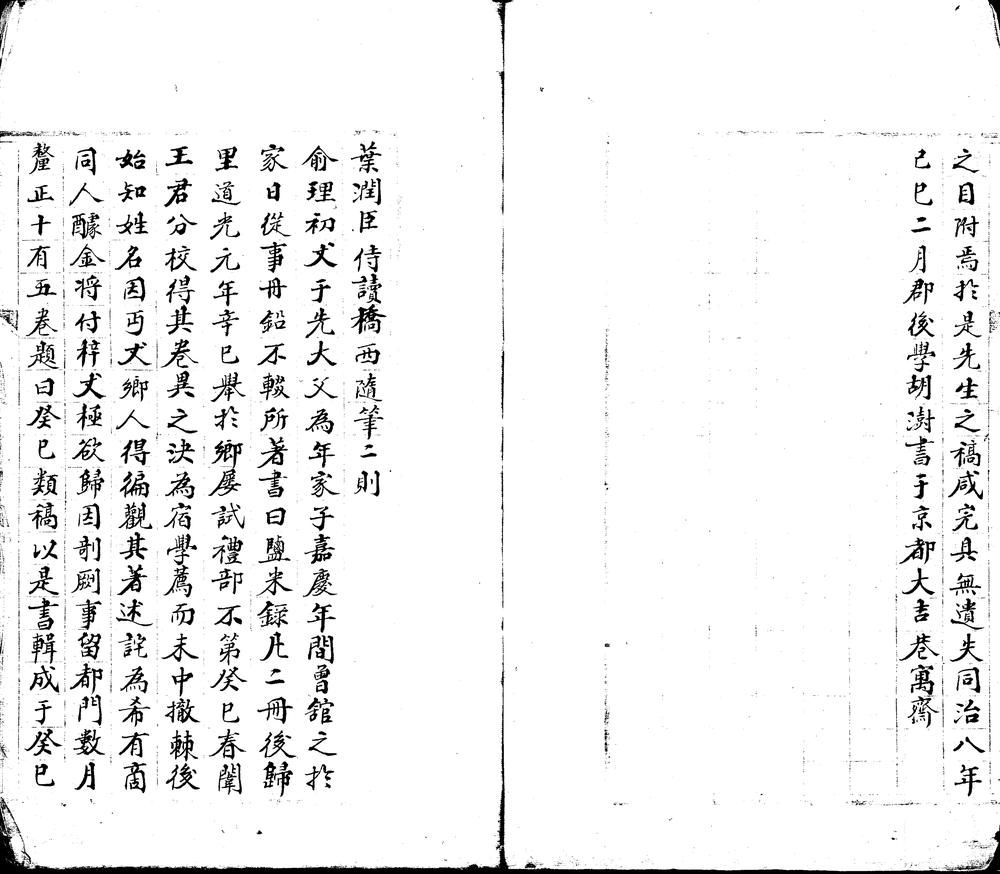 之目附焉於是先生之稿咸完具無遺失同治八年
己巳二月郡後學胡澍書于京都大吉巷寓齋
葉潤臣侍讀橋西隨筆二則
俞理初丈于先大父為年家子嘉慶年間曾舘之於
家日從事丹鉛不輟所著書曰鹽米錄凡二冊後歸
里道光元年辛巳舉於鄉屢試禮部不第癸巳春闈
王君分校得其卷異之決為宿學薦而未中撤棘後
始知姓名因丐丈鄉人得徧觀其著述詫為希有商
同人醵金將付梓丈極欲歸因剞劂事留都門數月
釐正十有五卷題曰癸巳類稿以是書輯成于癸巳